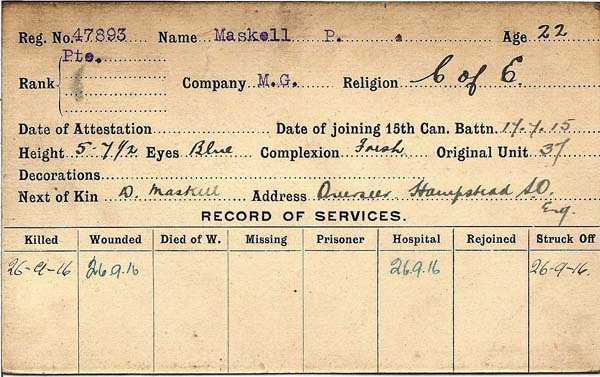 Reg. No. 47893 Name Maskell P. Age 22
Pte.
Rank Company M.G. Religion C of E.
Date of Attestation Date of joining 15th Can. Battn.
Height 5-7½ Eyes Blue Complexion Fresh Original Unit 37
Decorations
Next of Kin D. Maskell Address Overseer Hampstead SO.
Eng.
RECORD OF SERVICES.
Killed Wounded Died of W. Missing Prisoner Hospital Rejoined Struck Off
26-9-16 26.9.16 26.9.16 26-9-16.